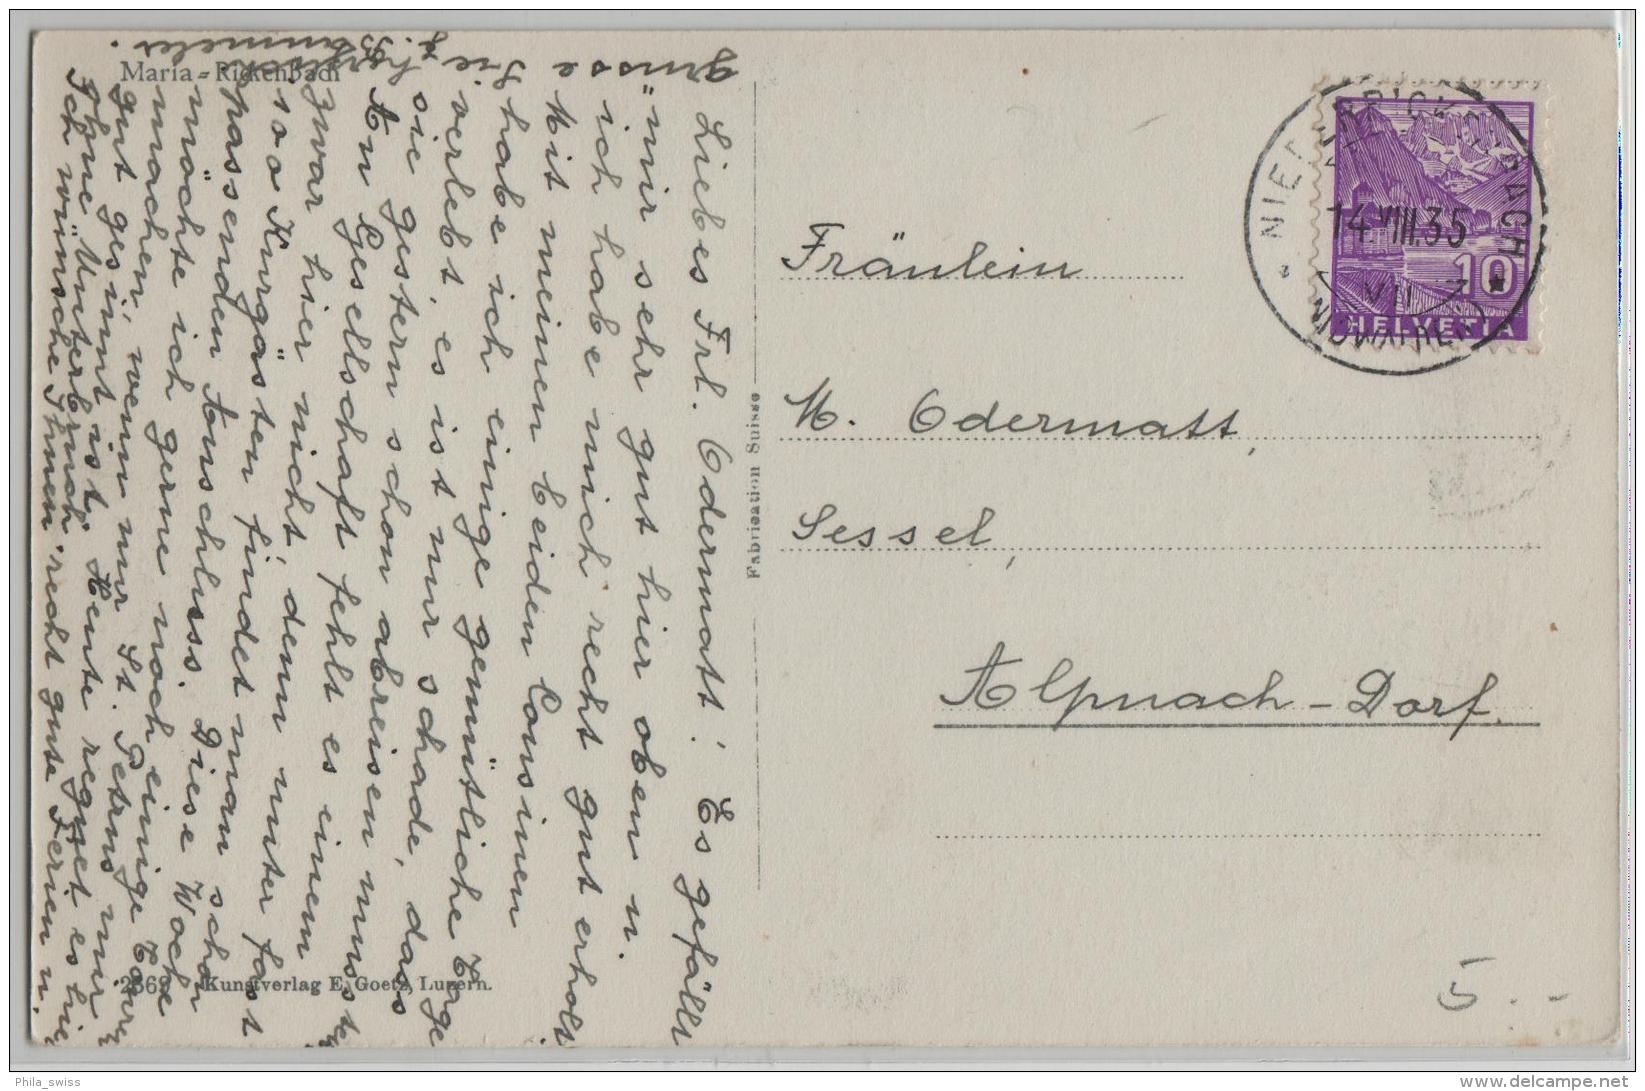 Maria-Rickenbach
Liebes Frl. Odermatt! Es gefällt
mir sehr gut hier oben u.
ich habe mich recht gut erholt
Mit meinen beiden Cousinen
habe ich einige gemütliche Tage
verlebt, es ist nur schade, dass
sie gestern schon abreisen mussten
An Gesellschaft fehlt es einem
zwar hier nicht, denn unter fast
100 Kurgästen findet man schon
passenden Anschluss. Diese Woche
möchte ich gerne noch einige Touren
machen, wenn nur St. Petrus mir
gut gesinnt ist. Heute regnet es hier
ohne Unterbruch.
Ich wünsche Ihnen recht gute Ferien u.
grüsse Sie herzlich
2369 Kunstverlag E. Goetz, Luzern.
Fabrication Suisse
Fräulein
M. Odermatt,
Sessel,
Alpnach-Dorf.
NIEDERRICKENBACH
14.VIII.35
(NIDWALDEN)
10
HELVETIA
5.--
Phila_swiss
www.delcampe.net